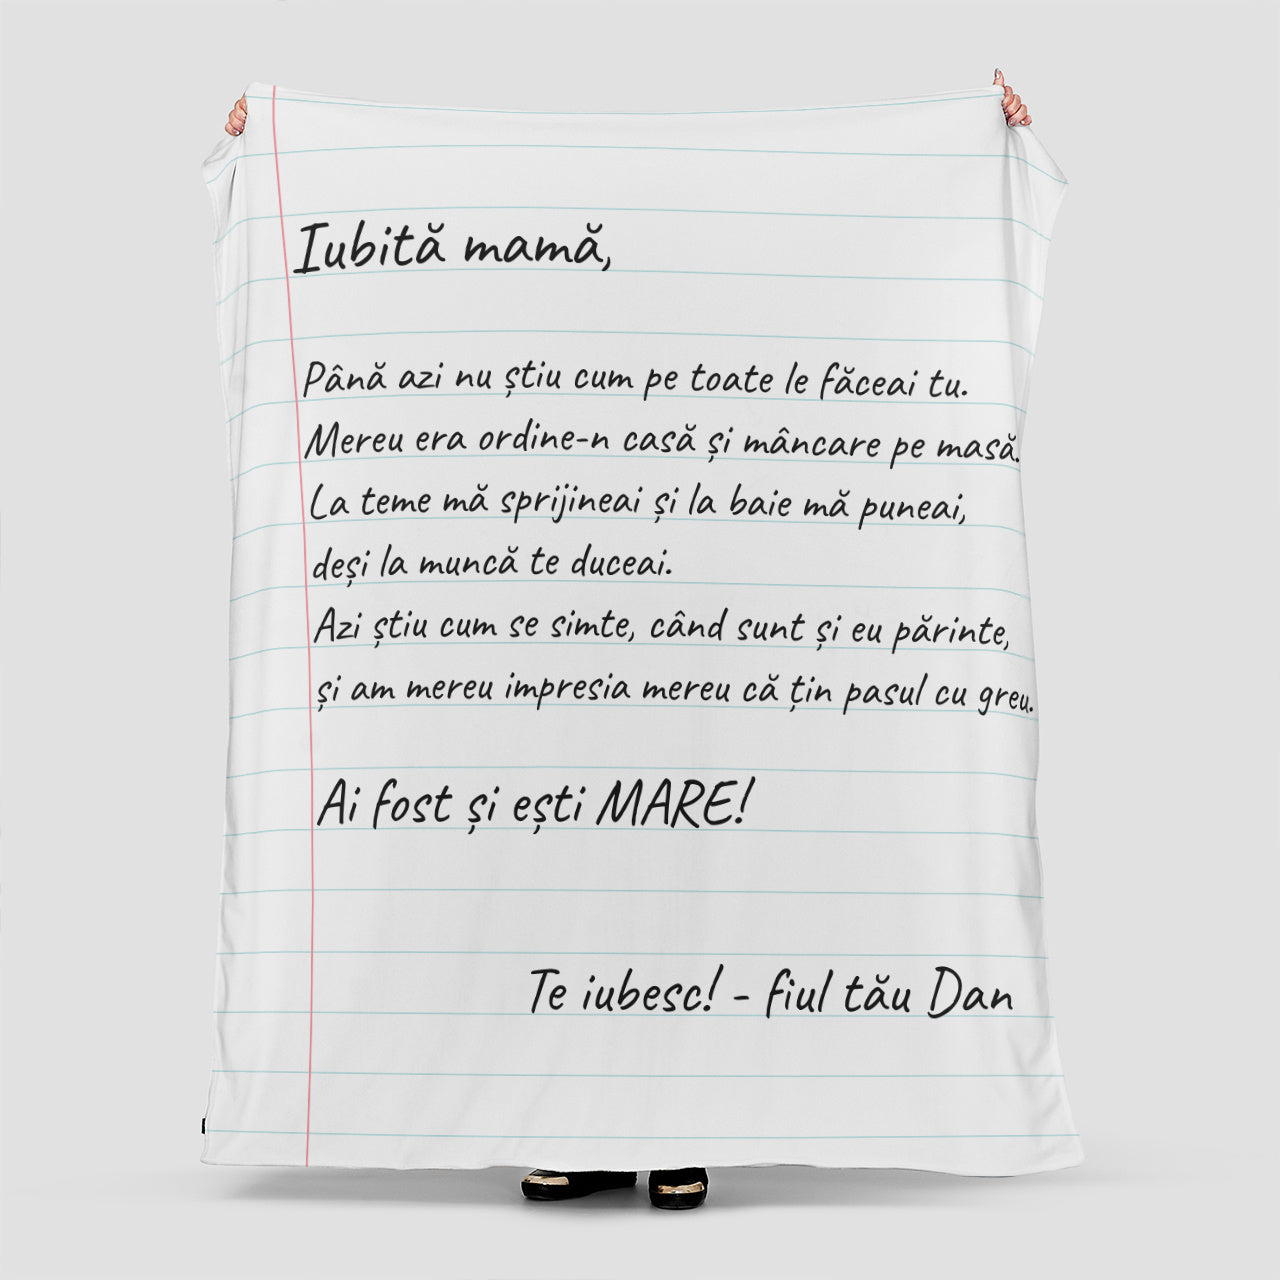 Iubită mamă,
Până azi nu știu cum pe toate le făceai tu.
Mereu era ordine-n casă și mâncare pe masă.
La teme mă sprijineai și la baie mă puneai,
deși la muncă te duceai.
Azi știu cum se simte, când sunt și eu părinte,
și am mereu impresia mereu că țin pasul cu greu.
Ai fost și ești MARE!
Te iubesc! - fiul tău Dan